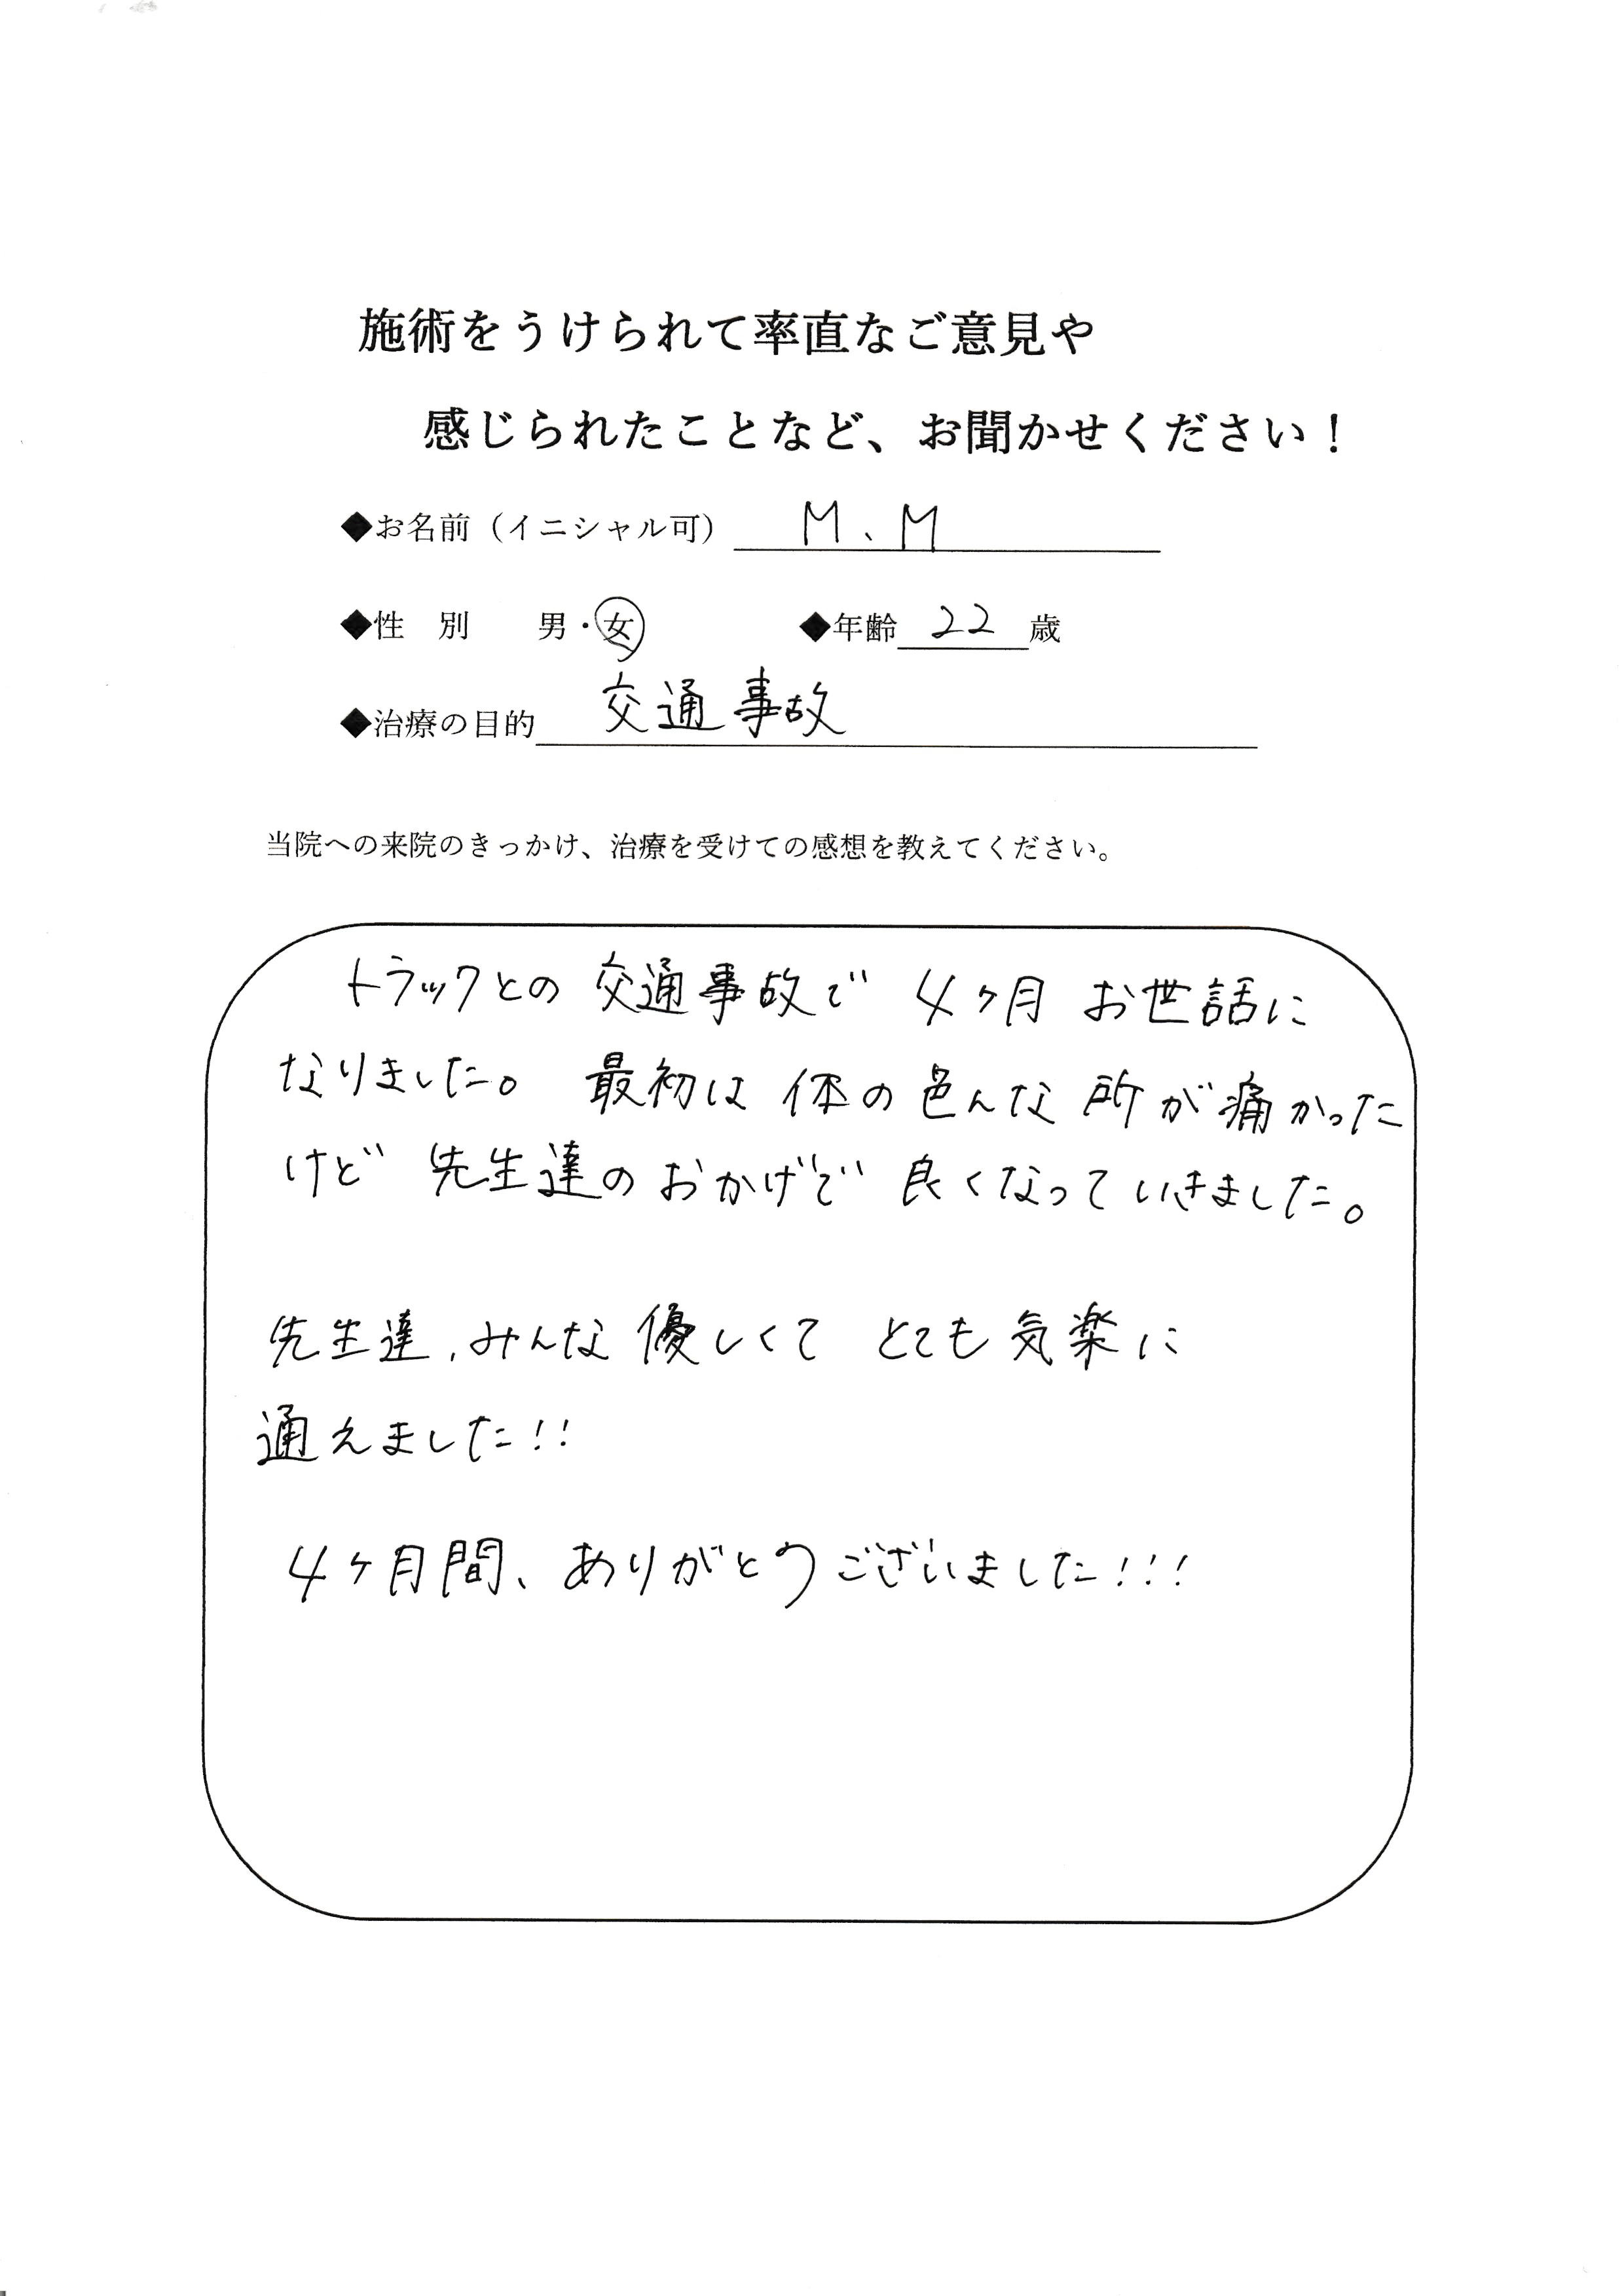 施術をうけられて率直なご意見や
感じられたことなど、お聞かせください！
◆お名前（イニシャル可） M、M
◆性　別　　男・女　　◆年齢 22 歳
◆治療の目的 交通事故
当院への来院のきっかけ、治療を受けての感想を教えてください。
トラックとの 交通事故で 4ヶ月 お世話に
なりました。 最初は 体の色んな 所が痛かった
けど 先生達の おかげで 良くなって いきました。
先生達、みんな 優しくて とても 気楽に
通えました!!
4ヶ月間、ありがとうございました!!!